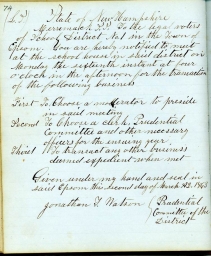 74
L.S. State of New Hampshire
Merrimack SS. To the legal voters
of School District No 1 in the Town of
Epsom. You are hereby notified to meet
at the school house in said district on
Monday the sixteenth instant at four
o'clock in the afternoon for the transaction
of the following business
First To Choose a moderator to preside
in said meeting
Second To Choose a clerk, Prudential
Committee and other necessary
officers for the ensuing year
Third To transact any other business
deemed expedient when met
Given under my hand and seal in
said Epsom the second day of March AD. 1863
Jonathan S Nutson ( Prudential
Committy of the
District